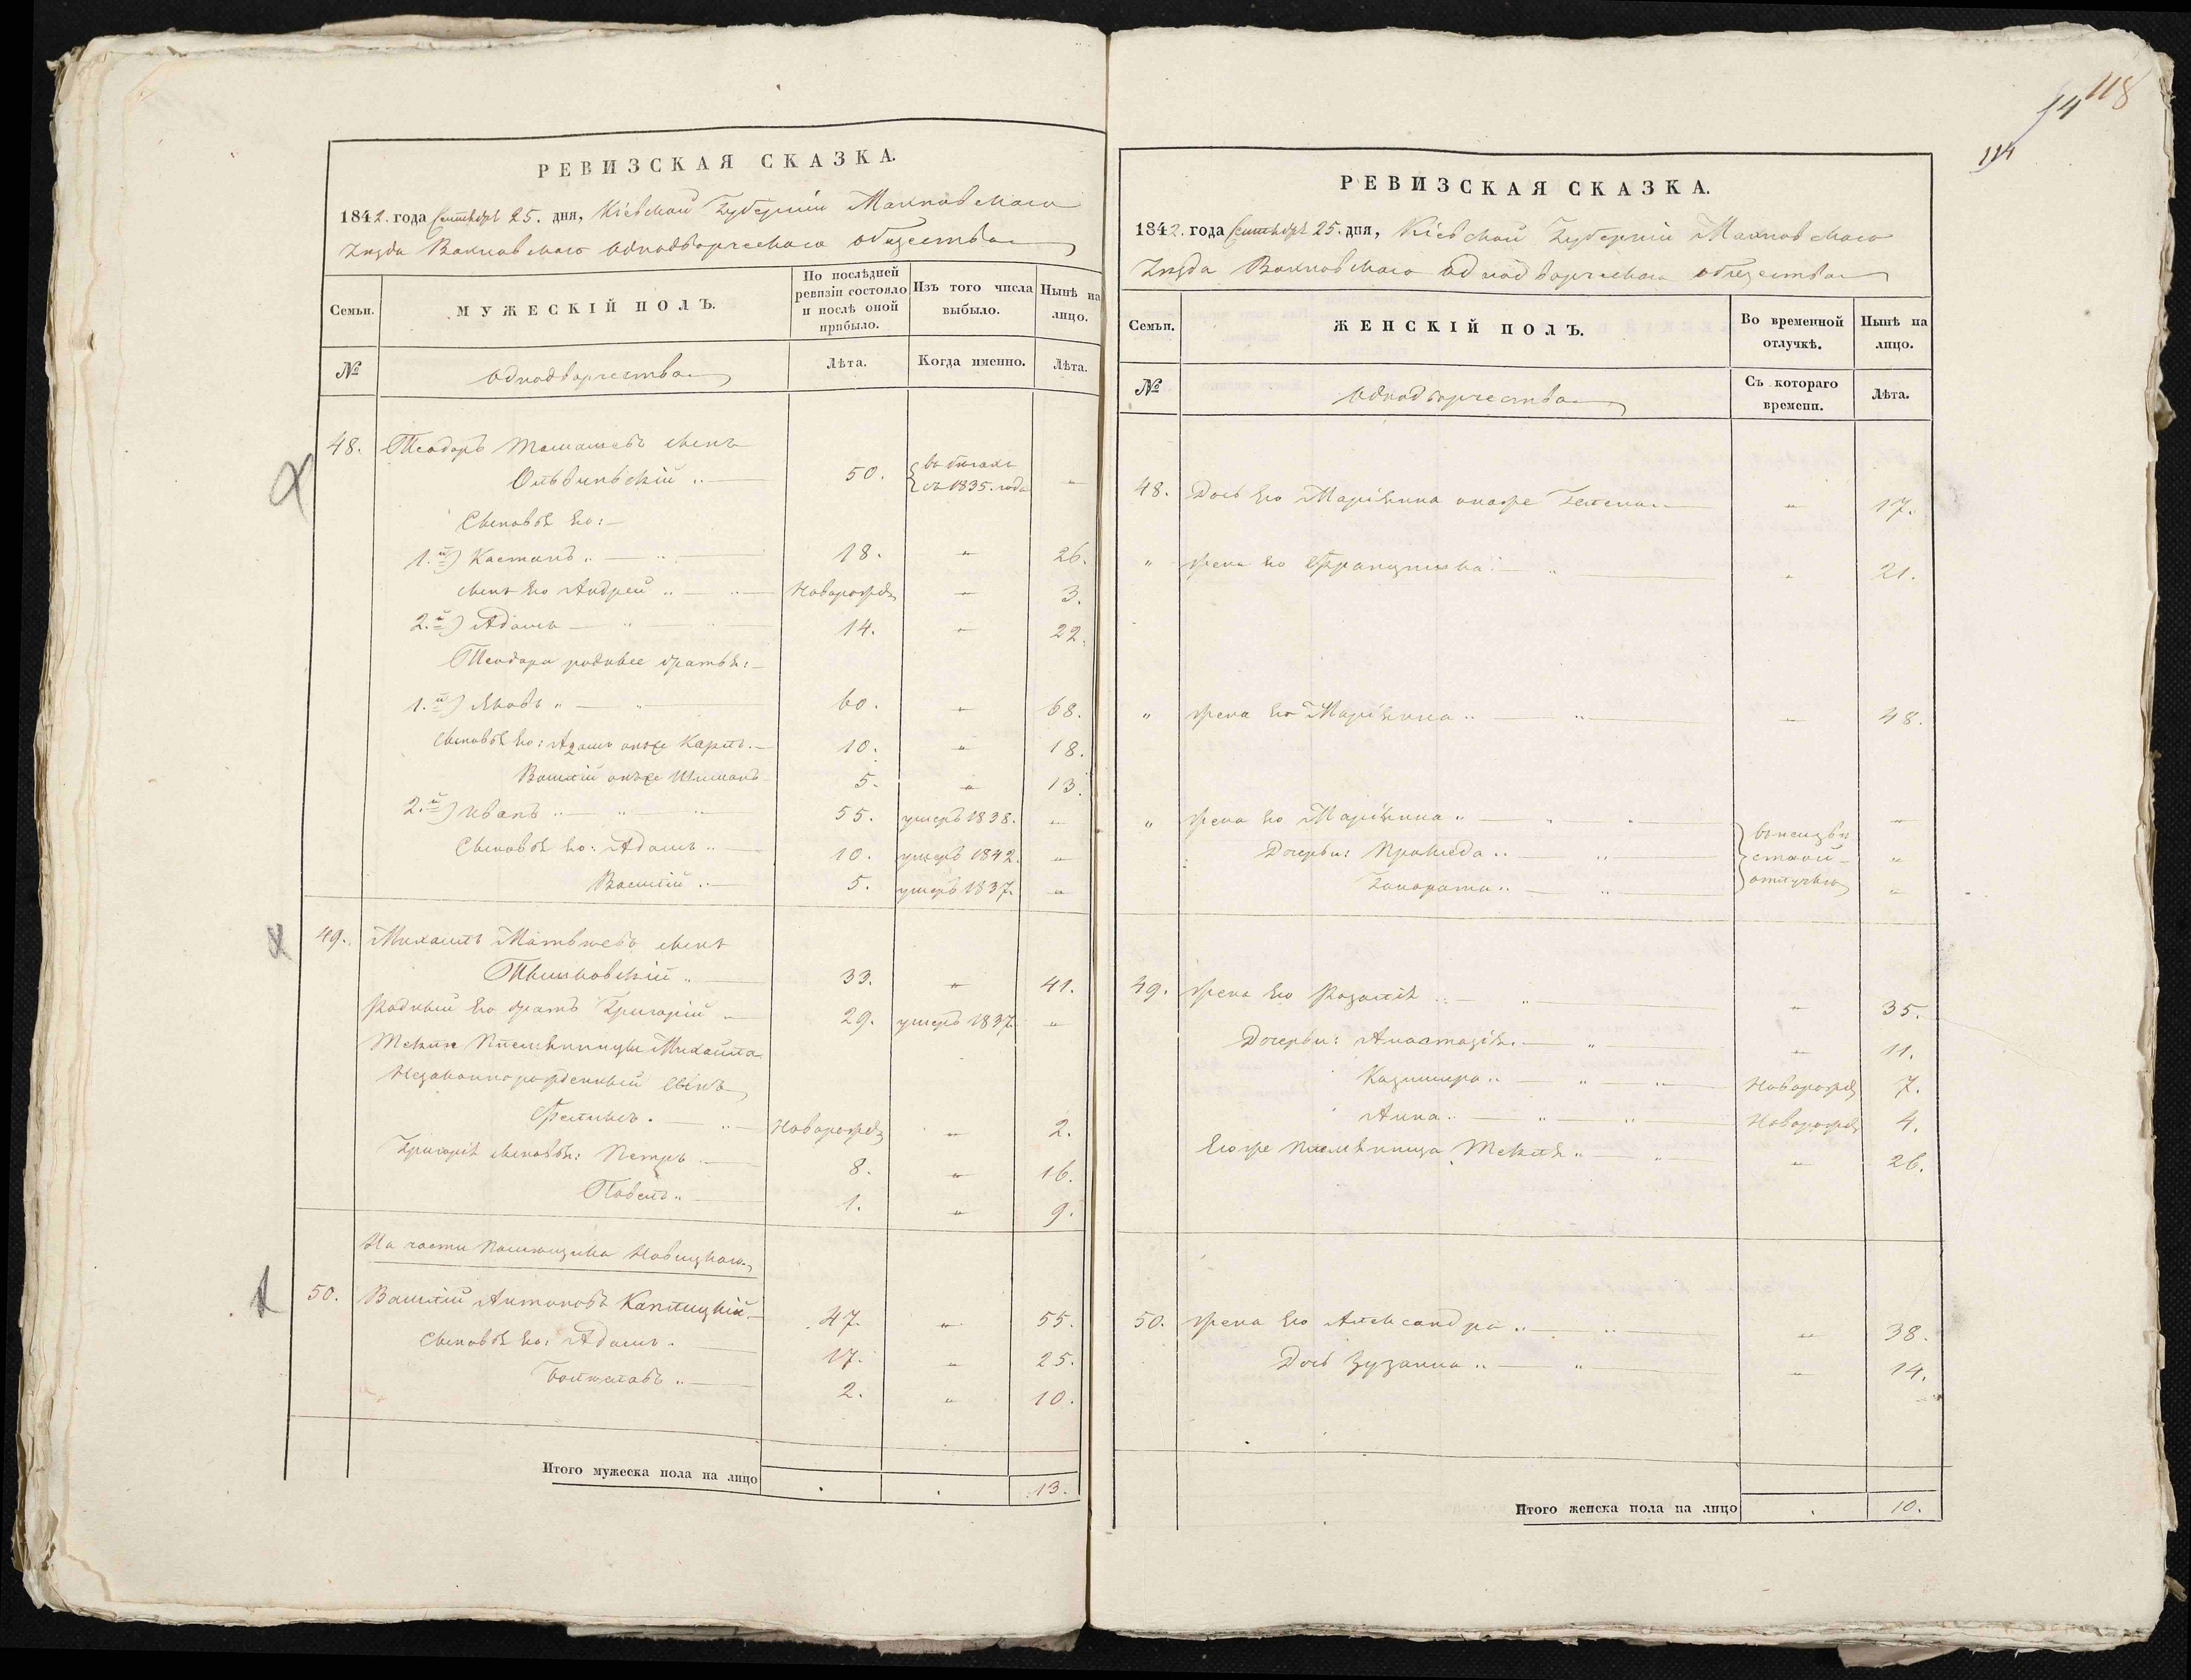 118
94
114
РЕВИЗСКАЯ СКАЗКА.
1842. года Сентября 25. дня, Кіевской Губерніи Махновскаго
Уѣзда Вахновскаго Однодворческаго общества
Семьи.
МУЖЕСКІЙ ПОЛЪ.
По послѣдней ревизіи состояло и послѣ оной прибыло.
Изъ того числа выбыло.
Нынѣ на лицо.
№
Однодворчества
Лѣта.
Когда именно.
Лѣта.
48. Теодоръ Томашевъ сынъ
50. въ бѣгахъ съ 1835. года „
Сыновья его:
1.й) Каетанъ „ 18. „ 26.
сынъ его Андрей „ Новорожд. „ 3.
2.й) Адамъ „ 14. „ 22.
Теодора родные братья:
1.й) Яковъ „ 60. „ 68.
Сыновья его: Адамъ онъже Карпъ. 10. „ 18.
Василій онъже Шимонъ 5. „ 13.
2.й) Иванъ „ 55. умеръ 1838. „
Сыновья его: Адамъ „ 10. умеръ 1842. „
Василій „ 5. умеръ 1837. „
49. Михаилъ Матвѣевъ сынъ
Тышковскій „ 33. „ 41.
Родный его братъ Григорій 29. умеръ 1837. „
Теклі Племянницы Михаила
Незаконнорожденный сынъ
Феликсъ. Новорожд. „ 2.
Григорія сыновья: Петръ 8. „ 16.
Павелъ „ 1. „ 9.
На части Помѣщика Новицкаго
50. Василій Антоновъ Каплицкій 47. „ 55.
Сыновья его: Адамъ. 17. „ 25.
Болеславъ „ 2. „ 10.
Итого мужеска пола на лицо . . 13.
РЕВИЗСКАЯ СКАЗКА.
1842. года Сентября 25. дня, Кіевской Губерніи Махновскаго
Уѣзда Вахновскаго Однодворческаго общества
Семьи.
ЖЕНСКІЙ ПОЛЪ.
Во временной отлучкѣ.
Нынѣ на лицо.
№
Однодворчества
Съ котораго времени.
Лѣта.
48. Дочь его Маріянна онаже Елена „ 17.
„ Жена его Францишка „ „ 21.
„ жена его Маріянна „ „ 48.
„ жена его Маріянна „ „
Дочери: Пракседа „ „
„
отлучкѣ
49. Жена его Розалія „ „ 35.
Дочери: Анастазія. „ „ 11.
Казимира „ Новорожд. 7.
Анна „ Новорожд. 4.
Егоже племянница Текля „ „ 26.
50. Жена его Александра „ „ 38.
Дочь Зузанна „ „ 14.
Итого женска пола на лицо . 10.